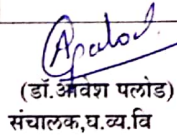 (डॉ.आवेश पलोड)
संचालक,घ.व्य.वि